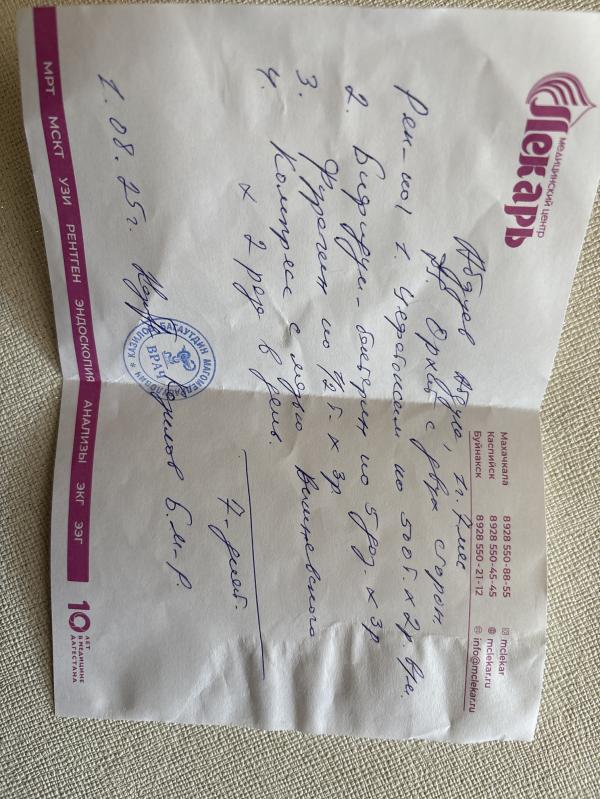 Лекарь
медицинский центр
Махачкала 8 928 550-88-55
Каспийск 8 928 550-45-45
Буйнакск 8 928 550-21-12
mclekar
mclekar.ru
info@mclekar.ru
2г. 7 мес
Д. Орхит с двух сторон
Рек-но 1. Цефотаксим по 500 х 2р.
2. Бифидум-бактерин по 5 доз х 3р
3. Фурагин по 1/2 т. х 3р.
4. Компресс с мазью Вишневского
х 2 раз в день.
7-дней.
1.08.25г.
КАЗИЛОВ БАГАУТДИН
ВРАЧ
Б.М-Р.
МРТ МСКТ УЗИ РЕНТГЕН ЭНДОСКОПИЯ АНАЛИЗЫ ЭКГ ЭЭГ
10 ЛЕТ
В МЕДИЦИНЕ
ДАГЕСТАНА